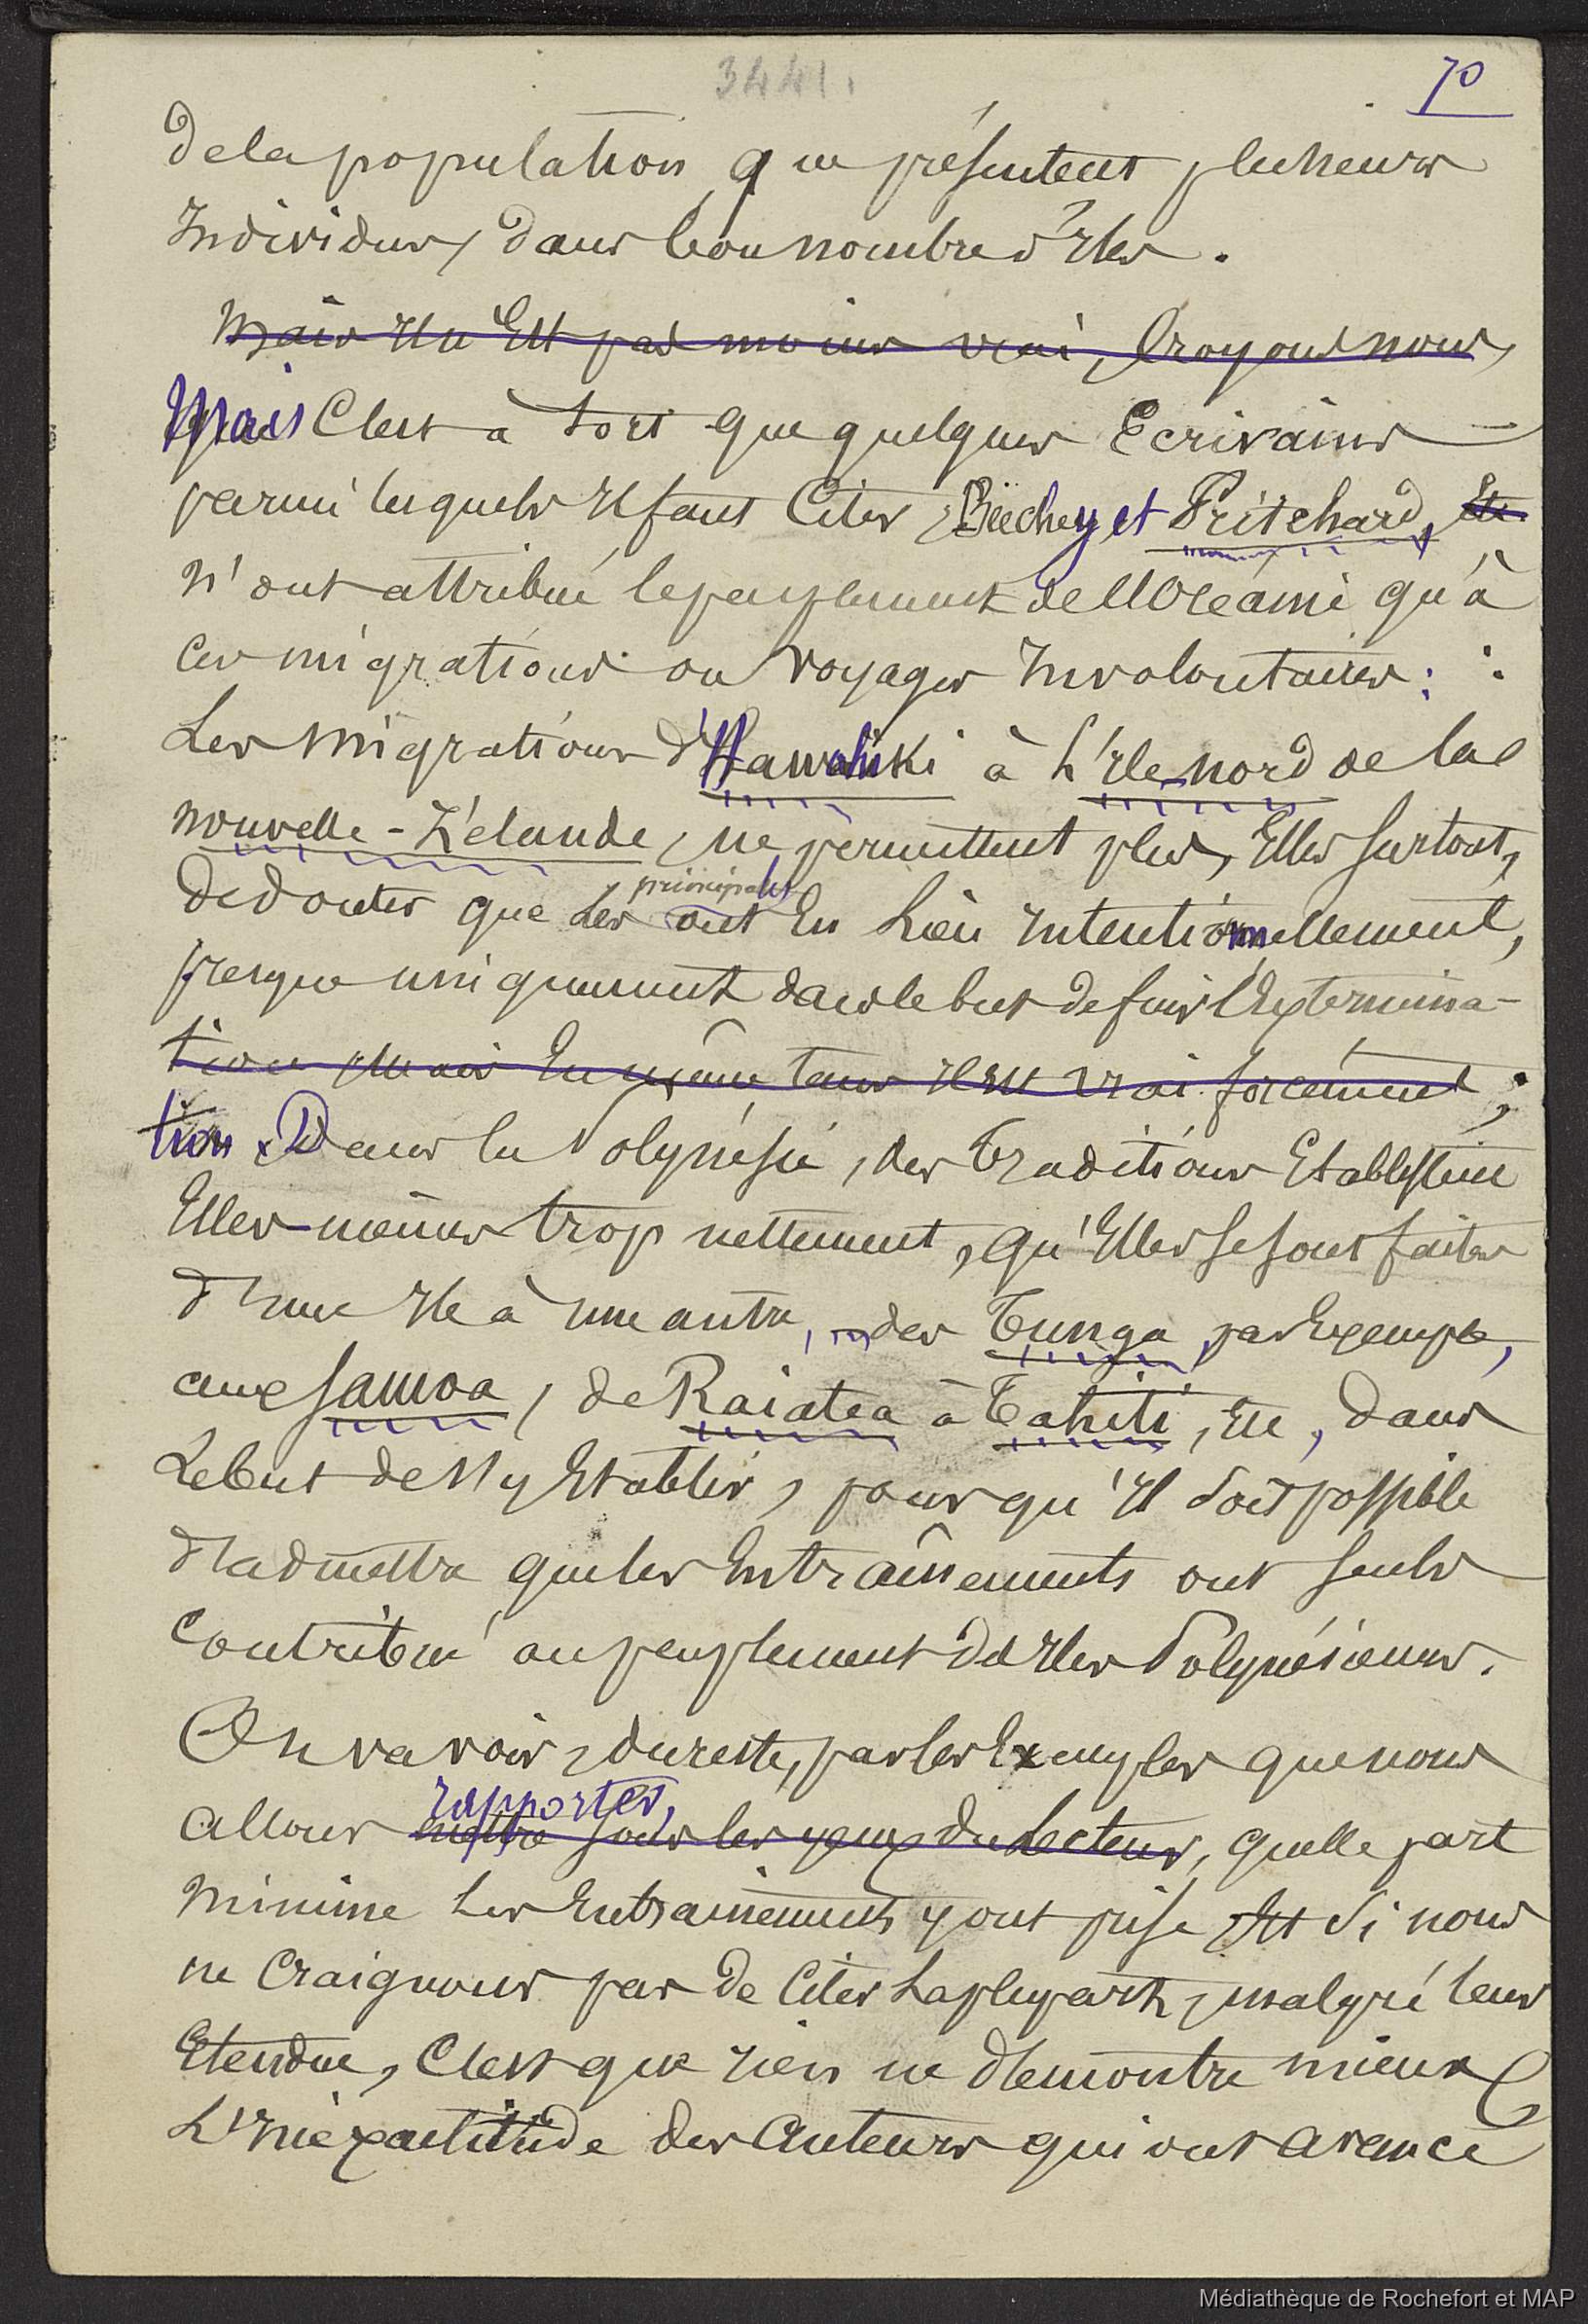 3441.
70
de la population que présentent plusieurs
Individus, dans bon nombre d'Iles.
Mais Il n'Est pas moins vrai, Croyons nous,
Mais C'est à tort que quelques Ecrivains
parmi lesquels Il faut Citer, Beechey et Pritchard, Etc
n'ont attribué le peuplement de l'Océanie qu'à
ces migrations ou voyages Involontaires :
Les migrations d'Hawahiki à l'Ile nord de la
nouvelle-Zélande, ne permettent plus, Elles surtout,
principales
de douter que les ont Eu Lieu Intentionnellement,
presque uniquement dans le but de fuir l'Extermina-
tion Mais En même tems Il Est vrai forcément ;
tion. Dans la Polynésie, des traditions Etablissent
Elles-mêmes trop nettement, qu'Elles se sont faites
d'une Ile à une autre, des Tunga par Exemple,
aux Samoa, de Raiatea à Tahiti, Etc, dans
Le but de s'y Etablir, pour qu'Il soit possible
d'admettre que les Entraînements ont seuls
Contribué au peuplement des Iles Polynésiennes.
On va voir, du reste, par les Exemples que nous
rapporter,
allons mettre sous les yeux du Lecteur, quelle part
minime les Entrainements y ont prise Et Si nous
ne Craignons pas de Citer La plupart, malgré leur
Etendue, C'est que rien ne démontre mieux
L'Inéxactitude des Auteurs qui ont avancé
Médiathèque de Rochefort et MAP